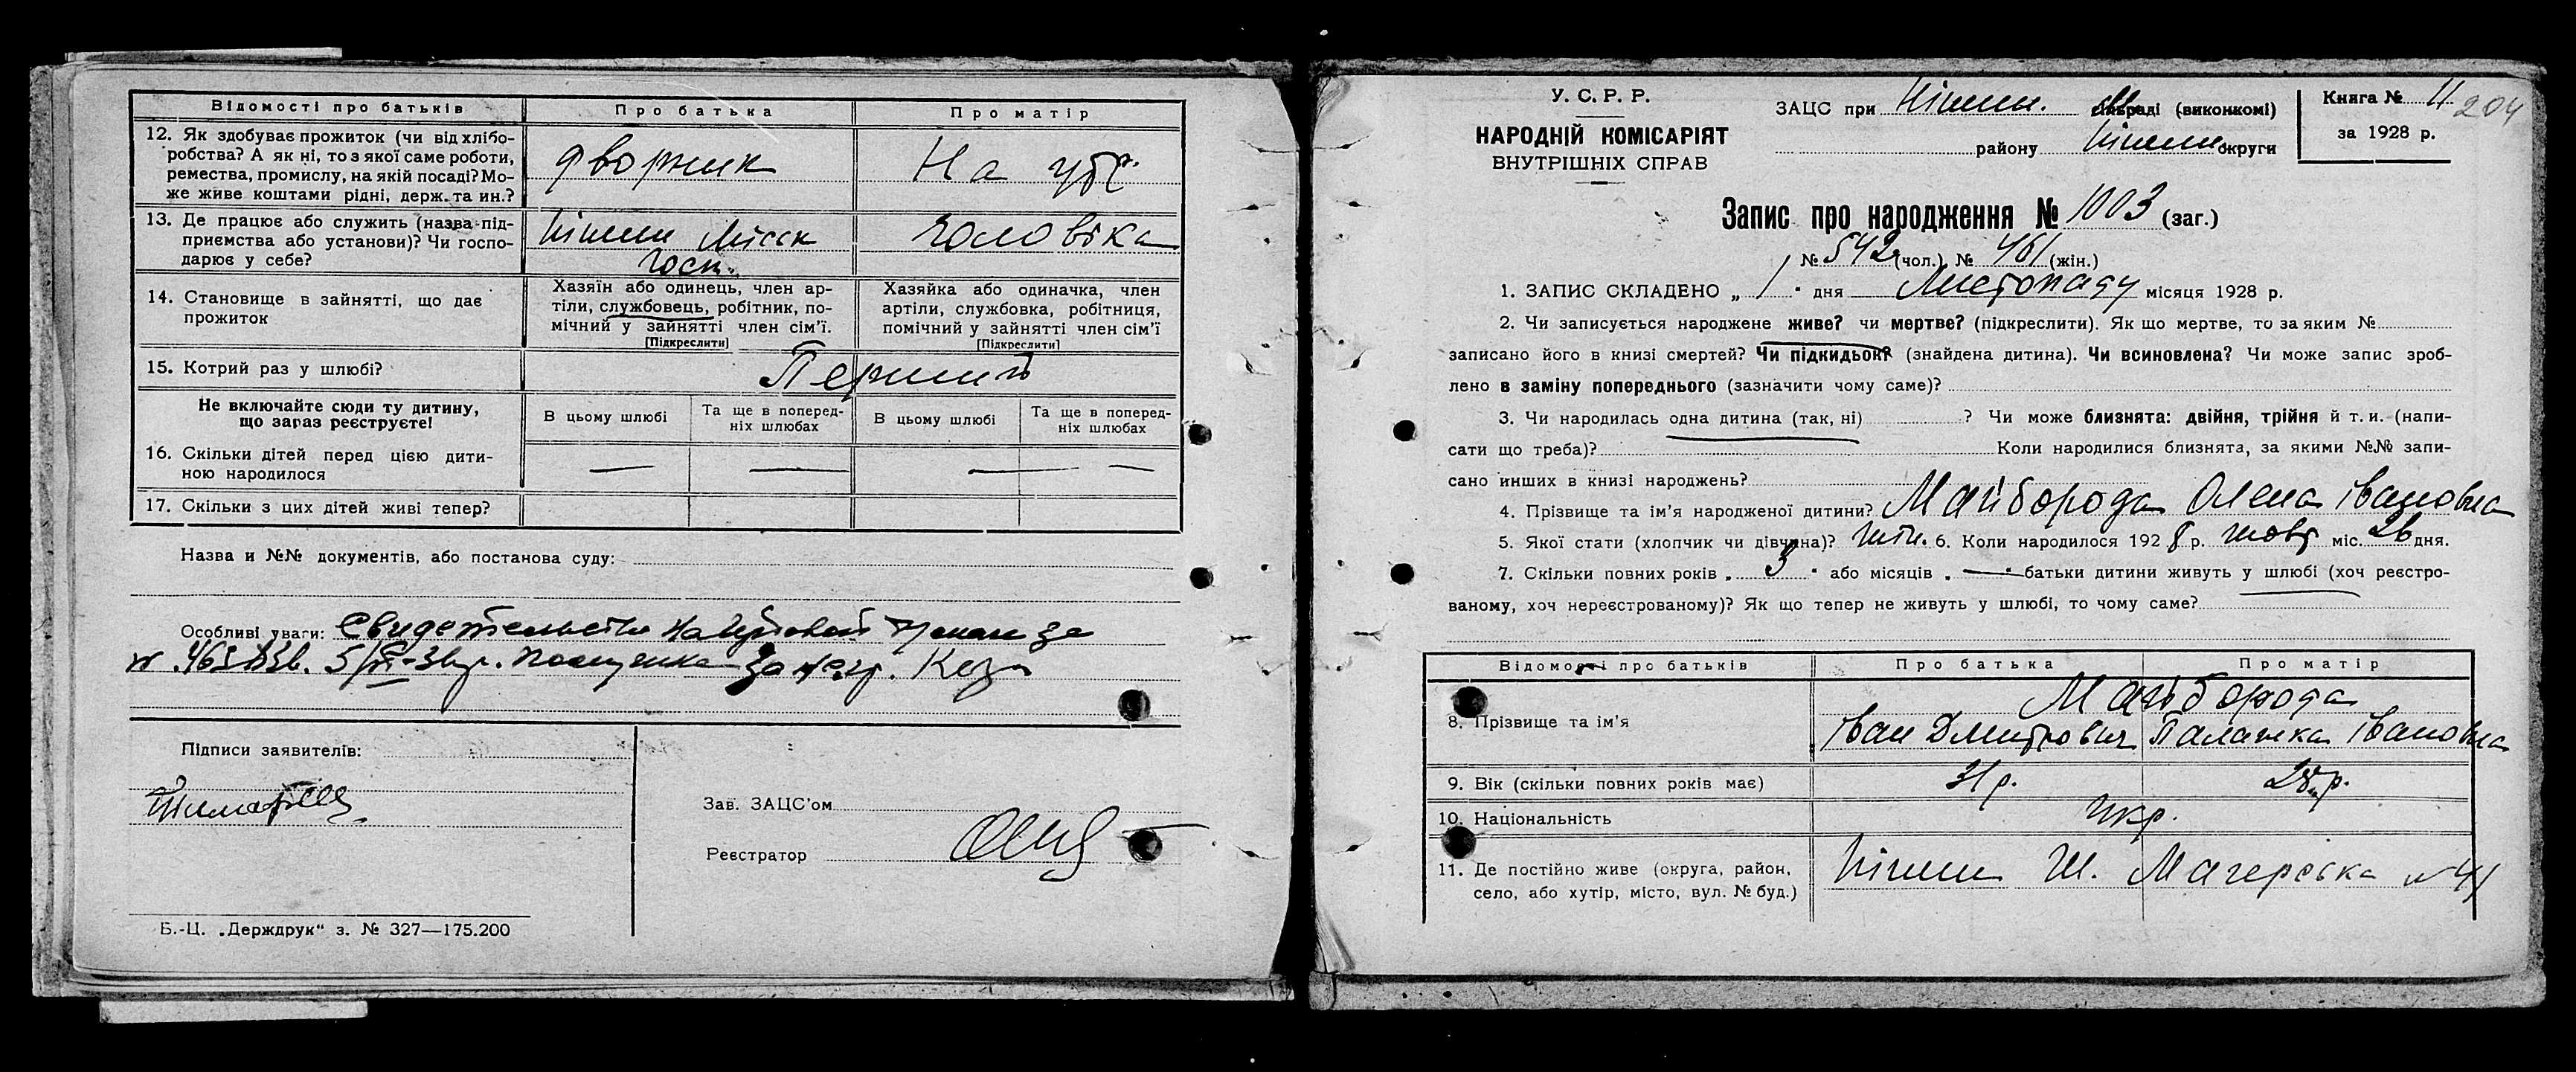 Відомості про батьків
Про батька
Про матір
12. Як здобуває прожиток (чи від хлібо-
робства? А як ні, то з якої саме роботи,
ремества, промислу, на якій посаді? Мо-
же живе коштами рідні, держ. та ин.?
дворник
На утр.
13. Де працює або служить (назва під-
приємства або установи)? Чи госпо-
дарює у себе?
Ніжин Міськ
Госп.
чоловіка
14. Становище в зайнятті, що дає
прожиток
Хазяїн або одинець, член ар-
тіли, службовець, робітник, по-
мічний у зайнятті член сім'ї.
[Підкреслити]
Хазяйка або одиначка, член
артіли, службовка, робітниця,
помічний у зайнятті член сім'ї
[Підкреслити]
15. Котрий раз у шлюбі?
Перший
Не включайте сюди ту дитину,
що зараз реєструєте!
В цьому шлюбі
Та ще в поперед-
ніх шлюбах
В цьому шлюбі
Та ще в поперед-
ніх шлюбах
16. Скільки дітей перед цією дити-
ною народилося
— — — —
17. Скільки з цих дітей живі тепер?
Назва и №№ документів, або постанова суду:
Особливі уваги: Свидетельство за
Підписи заявителів:
Зав. ЗАЦС'ом
Реєстратор
Б.-Ц. „Держдрук" з. № 327—175.200
У. С. Р. Р.
НАРОДНІЙ КОМІСАРІЯТ
ВНУТРІШНІХ СПРАВ
ЗАЦС при Ніжин. міськраді (виконкомі)
району Ніжин округи
Книга № 11
204
за 1928 р.
Запис про народження № 1003 (заг.)
№ 542 (чол.) № 461 (жін.)
1. ЗАПИС СКЛАДЕНО „ 1 " дня Листопаду місяця 1928 р.
2. Чи записується народжене живе? чи мертве? (підкреслити). Як що мертве, то за яким №
записано його в книзі смертей? Чи підкидьок? (знайдена дитина). Чи всиновлена? Чи може запис зроб-
лено в заміну попереднього (зазначити чому саме)?
3. Чи народилась одна дитина (так, ні) ? Чи може близнята: двійня, трійня й т. и. (напи-
сати що треба)? Коли народилися близнята, за якими №№ запи-
сано инших в книзі народжень?
4. Прізвище та ім'я народженої дитини? Майборода Олена Івановна
5. Якої стати (хлопчик чи дівчина)? жін. 6. Коли народилося 1928 р. жовт міс. 26 дня.
7. Скільки повних років „ 3 " або місяців „ — " батьки дитини живуть у шлюбі (хоч реєстро-
ваному, хоч нереєстрованому)? Як що тепер не живуть у шлюбі, то чому саме?
Відомості про батьків
Про батька
Про матір
8. Прізвище та ім'я
Майборода
Іван Дмитрович
Палажка Івановна
9. Вік (скільки повних років має)
31 р.
28 р.
10. Національність
Укр.
11. Де постійно живе (округа, район,
село, або хутір, місто, вул. № буд.)
Ніжин Ш. Магерська № 41